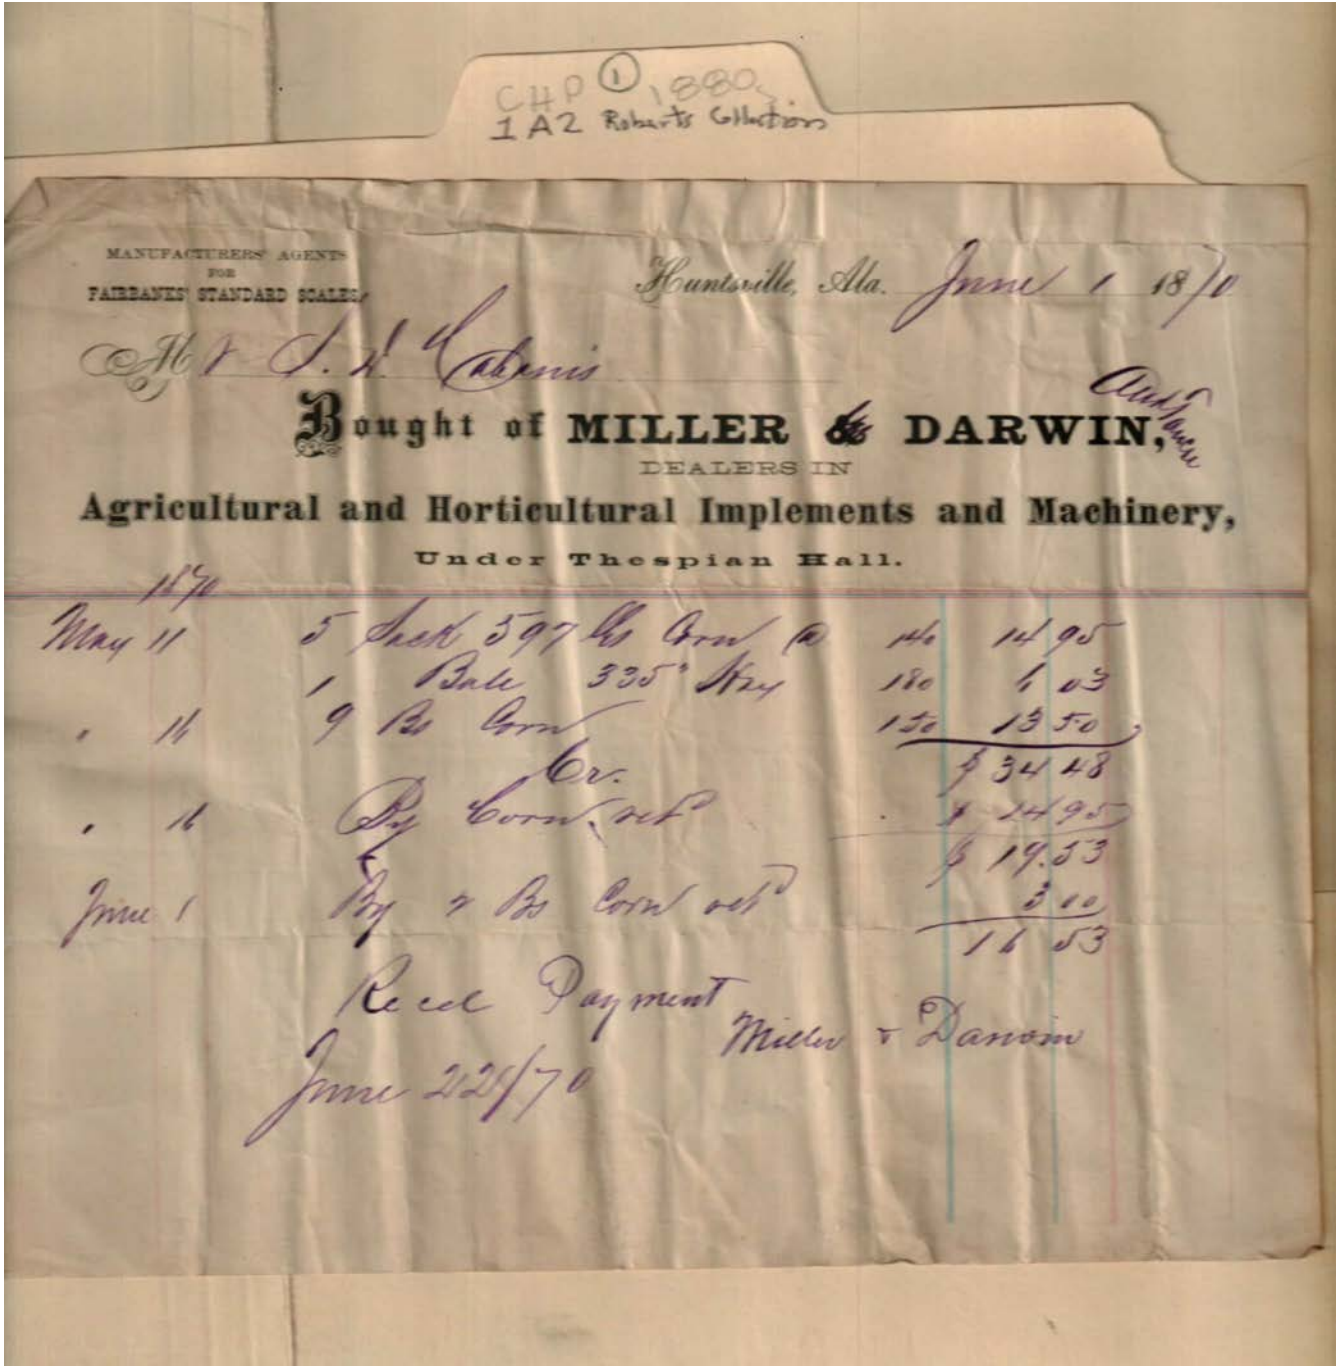 CHP ① 1880s
1A2 Roberts Collection
MANUFACTURERS' AGENTS
FOR
FAIRBANKS' STANDARD SCALES,
Huntsville, Ala. June 1 1870
Mr S. D. Cabanis
Bought of MILLER & DARWIN,
DEALERS IN
Agricultural and Horticultural Implements and Machinery,
Under Thespian Hall.
1870
May 11 5 Sack 597 lbs Corn @ 140 14 95
1 Bale 335 " Hay 180 6 03
" 16 9 Bs Corn 150 13 50
Cr. $ 34 48
" 16 By Corn retd $ 14 95
$ 19.53
June 1 By 2 Bs Corn retd 3 00
16 53
Recd Payment
Miller & Darwin
June 22d/70